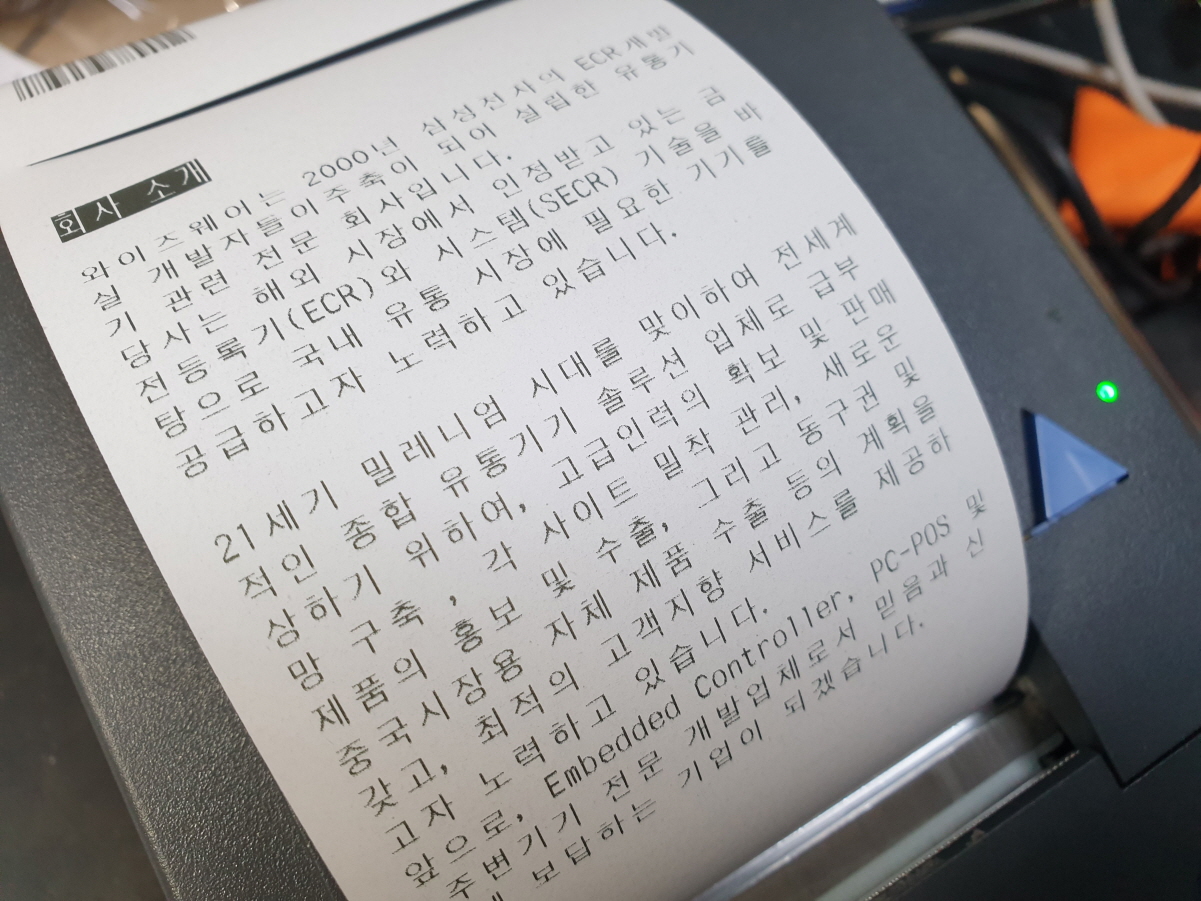 회사 소개
와이즈웨이는 2000년 삼성전자의 ECR개발
실 개발자들이주축이 되어 설립한 유통기
기 관련 전문 회사입니다.
당사는 해외 시장에서 인정받고 있는 금
전등록기(ECR)와 시스템(SECR) 기술을 바
탕으로 국내 유통 시장에 필요한 기기를
공급하고자 노력하고 있습니다.
21세기 밀레니엄 시대를 맞이하여 전세계
적인 종합 유통기기 솔루션 업체로 급부
상하기 위하여, 고급인력의 확보 및 판매
망 구축, 각 사이트 밀착 관리, 새로운
제품의 홍보 및 수출, 그리고 동구권 및
중국시장용 자체 제품 수출 등의 계획을
갖고, 최적의 고객지향 서비스를 제공하
고자 노력하고 있습니다.
앞으로, Embedded Controller, PC-POS 및
주변기기 전문 개발업체로서 믿음과 신
보답하는 기업이 되겠습니다.